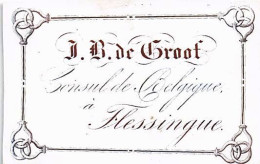 J. B. de Groof
Consul de Belgique,
à
Flessingue.